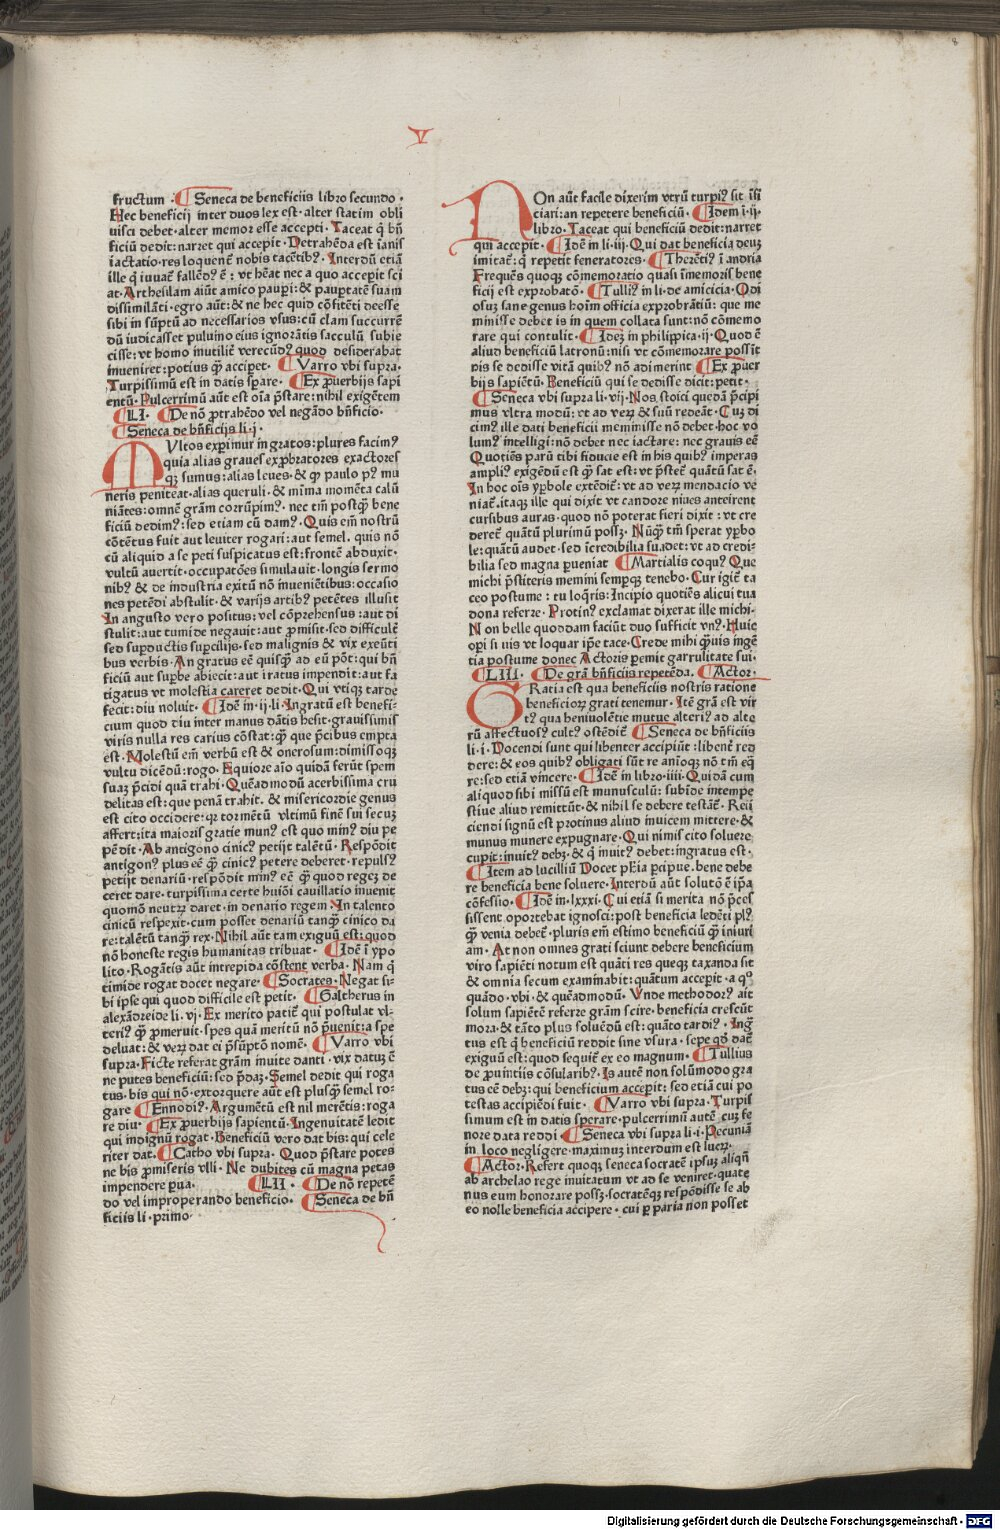 V
fructum · ¶ Seneca de beneficiis libro secundo ·
Hec beneficij inter duos lex est · alter statim obli
uisci debet · alter memor esse accepti · Taceat q̄ bñ
ficiū dedit: narret qui accepit · Detrahēda est īanis
iactatio · res loquent nobis tacētib⁹ · Interdū etiā
ille q̄ iuuat̄ fallēd⁹ ē : vt hēat nec a quo accepit sci
at · Archesilam aiūt amico paupi: & paup̄tatē suam
dissimilāti · egro aūt: & ne hec quid cōfitēti deesse
sibi in sūptū ad necessarios vsus: cū clam succurrē
dū iudicasset puluino eius ignorātis sacculū subie
cisse: vt homo inutilit̄ verecūd⁹ quod desiderabat
inueniret: potius q̄ȝ accipet · ¶ Varro vbi supra ·
Turpissimū est in datis sp̄are · ¶ Ex ꝓuerbijs sapi
entū · Pulcerrimū aūt est oīa p̄stare: nihil exigētem
¶ LI · ¶ De nō ꝓtrahēdo vel negādo bñficio ·
¶ Seneca de bñficijs li · j ·
MVltos exp̄imur ingratos: plures facim⁹
quia alias graues exꝓbratores exactores
qȝ sumus: alias leues · & q̄ paulo p⁹ mu
neris peniteat · alias queruli · & mīma momēta calū
niātes: omnē grām corrūpim⁹ · nec tm̄ postq̄ȝ bene
ficiū dedim⁹: sed etiam cū dam⁹ · Quis em̄ nostrū
cōtētus fuit aut leuiter rogari: aut semel · quis nō
cū aliquid a se peti suspicatus est: frontē abduxit ·
vultū auertit · occupatōes simulauit · longis sermo
nib⁹ & de industria exitū nō inueniētibus: occasio
nes petēdi abstulit · & varijs artib⁹ petētes illusit
In angusto vero positus: vel cōprehensus: aut di
stulit: aut tumide negauit: aut ꝓmisit · sed difficult̄
sed supductis supcilijs · sed malignis & vix exeūti
bus verbis · An gratus eē quisq̄ȝ ad eū pōt: qui bñ
ficiū aut supbe abiecit: aut iratus impendit: aut fa
tigatus vt molestia careret dedit · Qui vtiqȝ tarde
fecit: diu noluit · ¶ Idē in · ij · li · Ingratū est benefi-
cium quod diu inter manus dātis hesit · grauissimis
viris nulla res carius cōstat: q̄ȝ que p̄cibus empta
est · Molestū em̄ verbū est & onerosum: dimissoqȝ
vultu dicēdū: rogo · Equiore aīo quidā ferūt spem
suaȝ p̄cidi quā trahi · Quēadmodū acerbissima cru
delitas est: que penā trahit · & misericordie genus
est cito occidere: qȝ tormētū vltimū finē sui secuȝ
affert: ita maioris gratie mun⁹ est quo min⁹ diu pe
pēdit · Ab antigono cinic⁹ petijt talētū · Respōdit
antigon⁹ plus eē q̄ȝ cinic⁹ petere deberet · repuls⁹
petijt denariū · respōdit min⁹ eē q̄ȝ quod regeȝ de
ceret dare · turpissima certe huiōi cauillatio inuenit
quomō neutrȝ daret · in denario regem · In talento
cinicū respexit · cum posset denariū tanq̄ȝ cinico da
re: talētū tanq̄ȝ rex · Nihil aūt tam exiguū est: quod
nō honeste regis humanitas tribuat · ¶ Idē ī ypo
lito · Rogātis aūt intrepida cōstent verba · Nam q̄
timide rogat docet negare · ¶ Socrates · Negat si-
bi ipse qui quod difficile est petit · ¶ Galtherus in
alexādreide li · vj · Ex merito patiē qui postulat vl-
teri⁹ q̄ȝ ꝓmeruit · spes quā meritū nō p̄uenit: a spe
deluat: & verȝ dat ei p̄sūptō nomē · ¶ Varro vbi
supra · Ficte referat grām inuite danti · vix datuȝ ē
ne putes beneficiū: sed p̄daȝ · Semel dedit qui roga
tus · bis qui nō · extorquere aūt est plusq̄ȝ semel ro-
gare ¶ Ennodi⁹ · Argumētū est nil merētis: roga
re diu · ¶ Ex ꝓuerbijs sapientū · Ingenuitatē ledit
qui indignū rogat · Beneficiū vero dat bis: qui cele
riter dat · ¶ Catho vbi supra · Quod p̄stare potes
ne bis ꝓmiseris vlli · Ne dubites cū magna petas
impendere ꝑua · ¶ LII · ¶ De nō repetē
do vel improperando beneficio · ¶ Seneca de bñ
ficiis li · primo ·
NOn aūt facile dixerim vtrū turpi⁹ sit īfi
ciari: an repetere beneficiū · ¶ Idem ī · ij ·
libro · Taceat qui beneficiū dedit: narret
qui accepit · ¶ Idē in li · iij · Qui dat beneficia deuȝ
imitat̄: q̄ repetit feneratores · ¶ Therēti⁹ ī andria
Frequēs quoqȝ cōmemoratio quasi īmemoris bene
ficij est exprobatō · ¶ Tulli⁹ in li · de amicicia · Odi
osuȝ sane genus hoīm officia exprobrātiū: que me
minisse debet is in quem collata sunt: nō cōmemo
rare qui contulit · ¶ Ideȝ in philippica · ij · Quod ē
aliud beneficiū latronū: nisi vt cōmemorare possit
pis se dedisse vitā quib⁹ nō adimerint ¶ Ex ꝓuer
bijs sapiētū · Beneficiū qui se dedisse dicit: petit ·
¶ Seneca vbi supra li · vij · Nos stoici quedā p̄cipi
mus vltra modū: vt ad verȝ & suū redeāt · Cuȝ di
cim⁹ ille dati beneficij meminisse nō debet · hoc vo
lum⁹ intelligi: nō debet nec iactare: nec grauis eē
Quotiēs parū tibi fiducie est in his quib⁹ imperas
ampli⁹ exigēdū est q̄ȝ sat est: vt p̄stet̄ quātū sat ē ·
In hoc oīs yꝑbole extēdit̄: vt ad verȝ mendacio ve
niat̄ · itaqȝ ille qui dixit vt candore niues anteirent
cursibus auras · quod nō poterat fieri dixit : vt cre
deret̄ quātū plurimū possȝ · Nūq̄ȝ tm̄ sperat yꝑbo
le: quātū audet · sed īcredibilia suadet: vt ad credi-
bilia sed magna ꝑueniat ¶ Martialis coqu⁹ Que
michi p̄stiteris memini semꝑqȝ tenebo · Cur igit̄ ta
ceo postume : tu loq̄ris: Incipio quotiēs alicui tua
dona referre · Protin⁹ exclamat dixerat ille michi-
Non belle quoddam faciūt duo sufficit vn⁹ · Huic
opi si uis vt loquar ipē tace · Crede mihi q̄ȝuis ingē
tia postume donec Actoris ꝑemit garrulitate sui ·
¶ LIII · ¶ De grā bñficiis repetēda · ¶ Actor ·
GRatia est qua beneficiis nostris ratione
beneficiorȝ grati tenemur · Itē grā est vir
t⁹ qua beniuolētie mutue alteri⁹ ad alte
rū affectuos⁹ cult⁹ ostēdit̄ ¶ Seneca de bñficiis
li · i · Docendi sunt qui libenter accipiūt : libent̄ red
dere: & eos quib⁹ obligati sūt re anīoqȝ nō tm̄ eq̄
re: sed etiā vincere · ¶ Idē in libro · iiii · Quidā cum
aliquod sibi missū est munusculū: subīde intempe
stiue aliud remittūt · & nihil se debere testāt̄ · Reii
ciendi signū est protinus aliud inuicem mittere · &
munus munere expugnare · Qui nimis cito soluere
cupit: inuit⁹ debȝ · & q̄ inuit⁹ debet: ingratus est ·
¶ Item ad lucilliū Docet pr̄ia p̄cipue · bene debe
re beneficia bene soluere · Interdū aūt solutō ē ip̄a
cōfessio · ¶ Idē in · lxxxi · Cui etiā si merita nō p̄ces
sissent · oportebat ignosci: post beneficia ledēti pl⁹
q̄ȝ venia debet̄ · pluris em̄ estimo beneficiū q̄ȝ iniuri
am · At non omnes grati sciunt debere beneficium
viro sapiēti notum est quāti res queqȝ taxanda sit
& omnia secum examinabit: quātum acceꝑit · a qº
quādo · vbi · & quēadmodū · Vnde methodor⁹ ait
solum sapiētē referre grām scire · beneficia crescūt
mora · & tāto plus soluēdū est: quāto tardi⁹ · Ingr̄
tus est q̄ beneficiū reddit sine vsura · sepe qd̄ dat̄
exiguū est: quod sequit̄ ex eo magnum · ¶ Tullius
de ꝓuintiis cōsularib⁹ · Is autē non solūmodo gra
tus eē debȝ: qui beneficium accepit: sed etiā cui po
testas accipiēdi fuit · ¶ Varro vbi supra · Turpis
simum est in datis sperare · pulcerrimū autē · cuȝ fe
nore data reddi · ¶ Seneca vbi supra li · i · Pecuniā
in loco negligere · maximuȝ interdum est lucrȝ ·
¶ Actor · Refert quoqȝ seneca socratē ipsuȝ aliqn̄
ab archelao rege inuitatum vt ad se veniret · quate
nus eum honorare possȝ · socratēqȝ respōdisse se ab
eo nolle beneficia accipere · cui ꝑ paria non posset
Digitalisierung gefördert durch die Deutsche Forschungsgemeinschaft - DFG